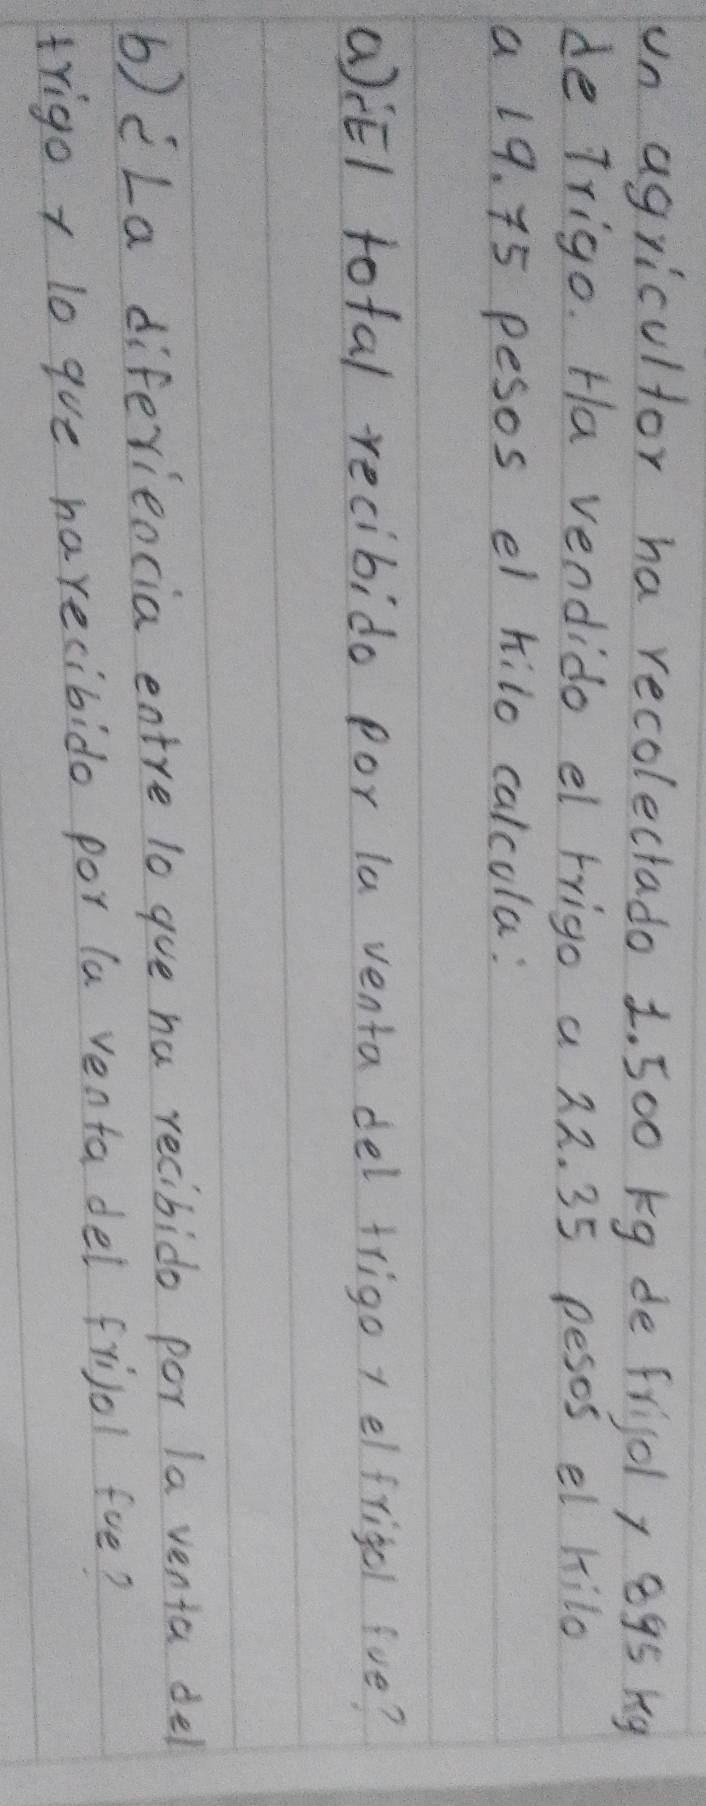 Un agricultor ha recolectado 1.500 kg de frijol y 895 kg
de Trigo. Ha vendido el trigo a 22.35 pesos el kilo
a 19.75 pesos el kilo calcula:
a) ¿El total recibido por la venta del trigo y el frigol fue?
b) ¿La diferiencia entre lo que ha recibido por la venta del
trigo y lo que harecibido por la venta del frijol fue?